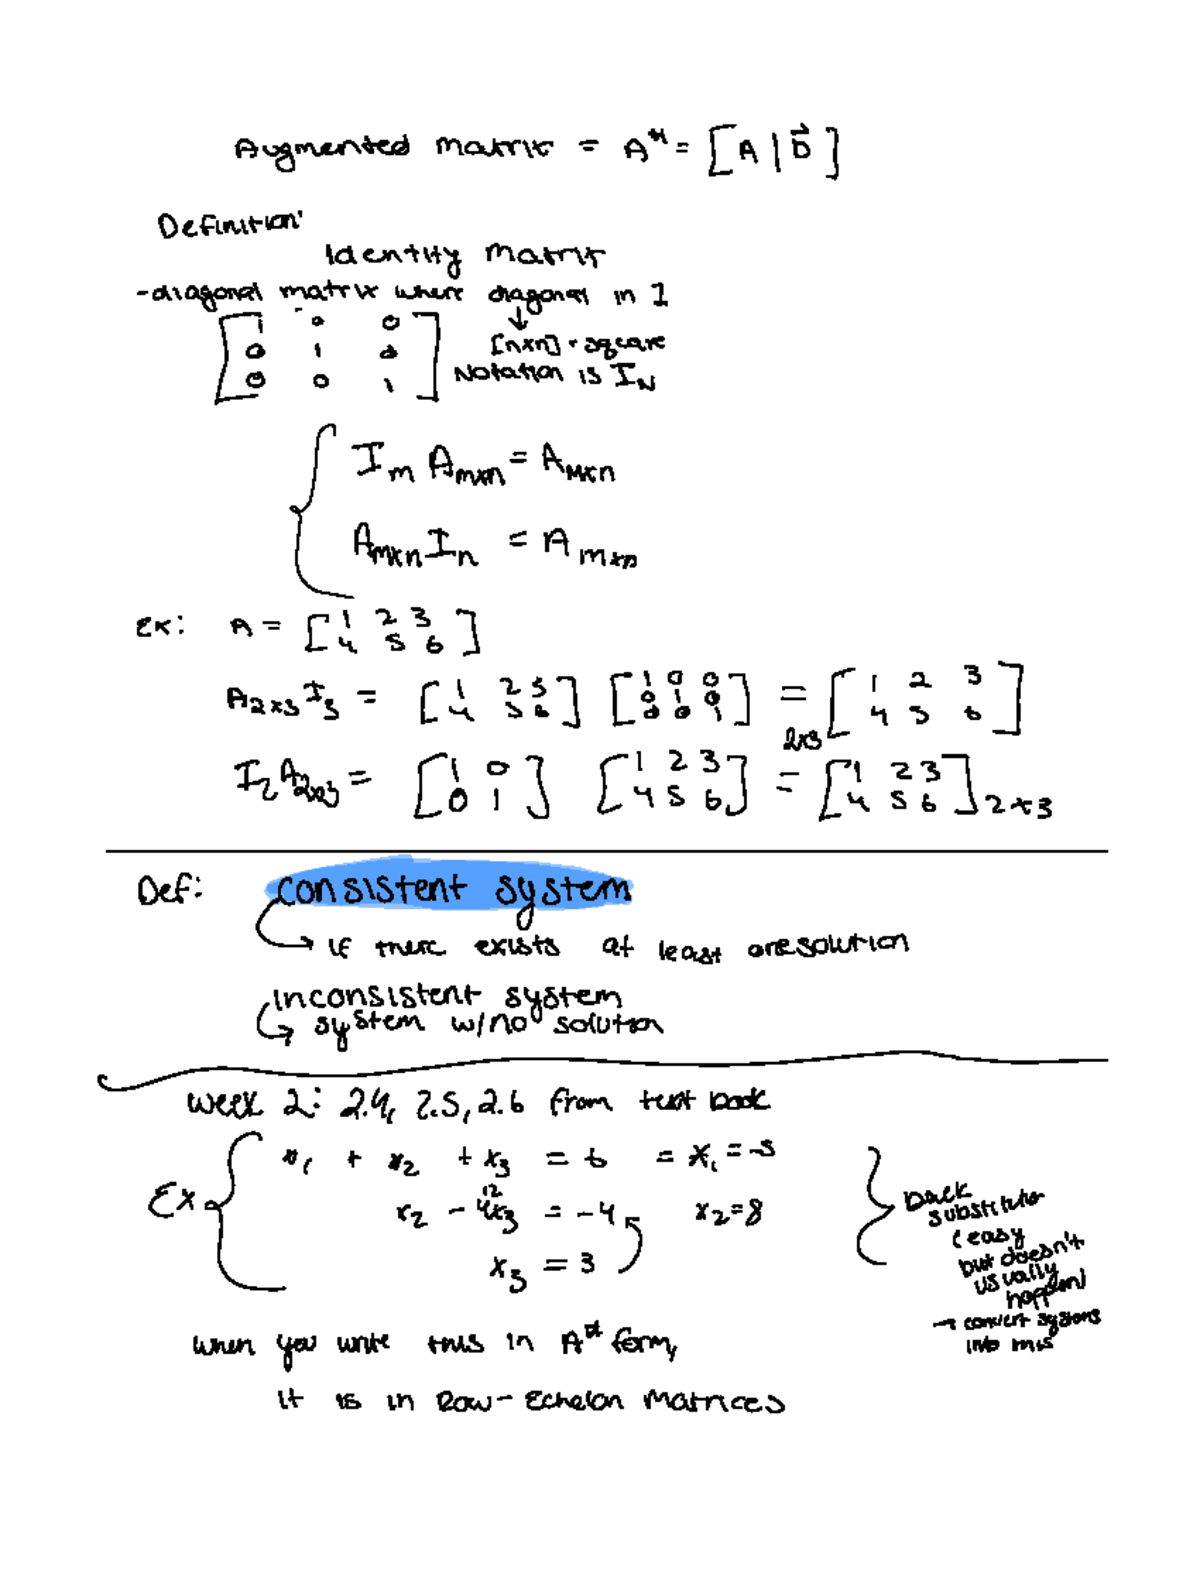 Augmented matrix = A# = [A | b⃗]
Definition:
Identity Matrix
-diagonal matrix where diagonal in 1
↓
[nxn] - square
Notation is IN
1 0 0
0 1 0
0 0 1
Im Amxn = Amxn
Amxn In = Amxn
Ex: A = [1 2 3
4 5 6]
A2x3 I3 = [1 2 3 [1 0 0 = [1 2 3
4 5 6] 0 1 0 4 5 6]
0 0 1] 2x3
I2 A2x3 = [1 0 [1 2 3 = [1 2 3
0 1] 4 5 6] 4 5 6]2x3
Def: consistent system
↳ if there exists at least one solution
inconsistent system
↳ system w/no solution
week 2: 2.4, 2.5, 2.6 from text book
x1 + x2 + x3 = 6 = x1 = -5
Ex
12
x2 - 4x3 = -4 x2 = 8
x3 = 3
back
substitute
(easy
but doesn't
usually
happen)
→ convert systems
into this
when you write this in A# form,
it is in Row-Echelon Matrices